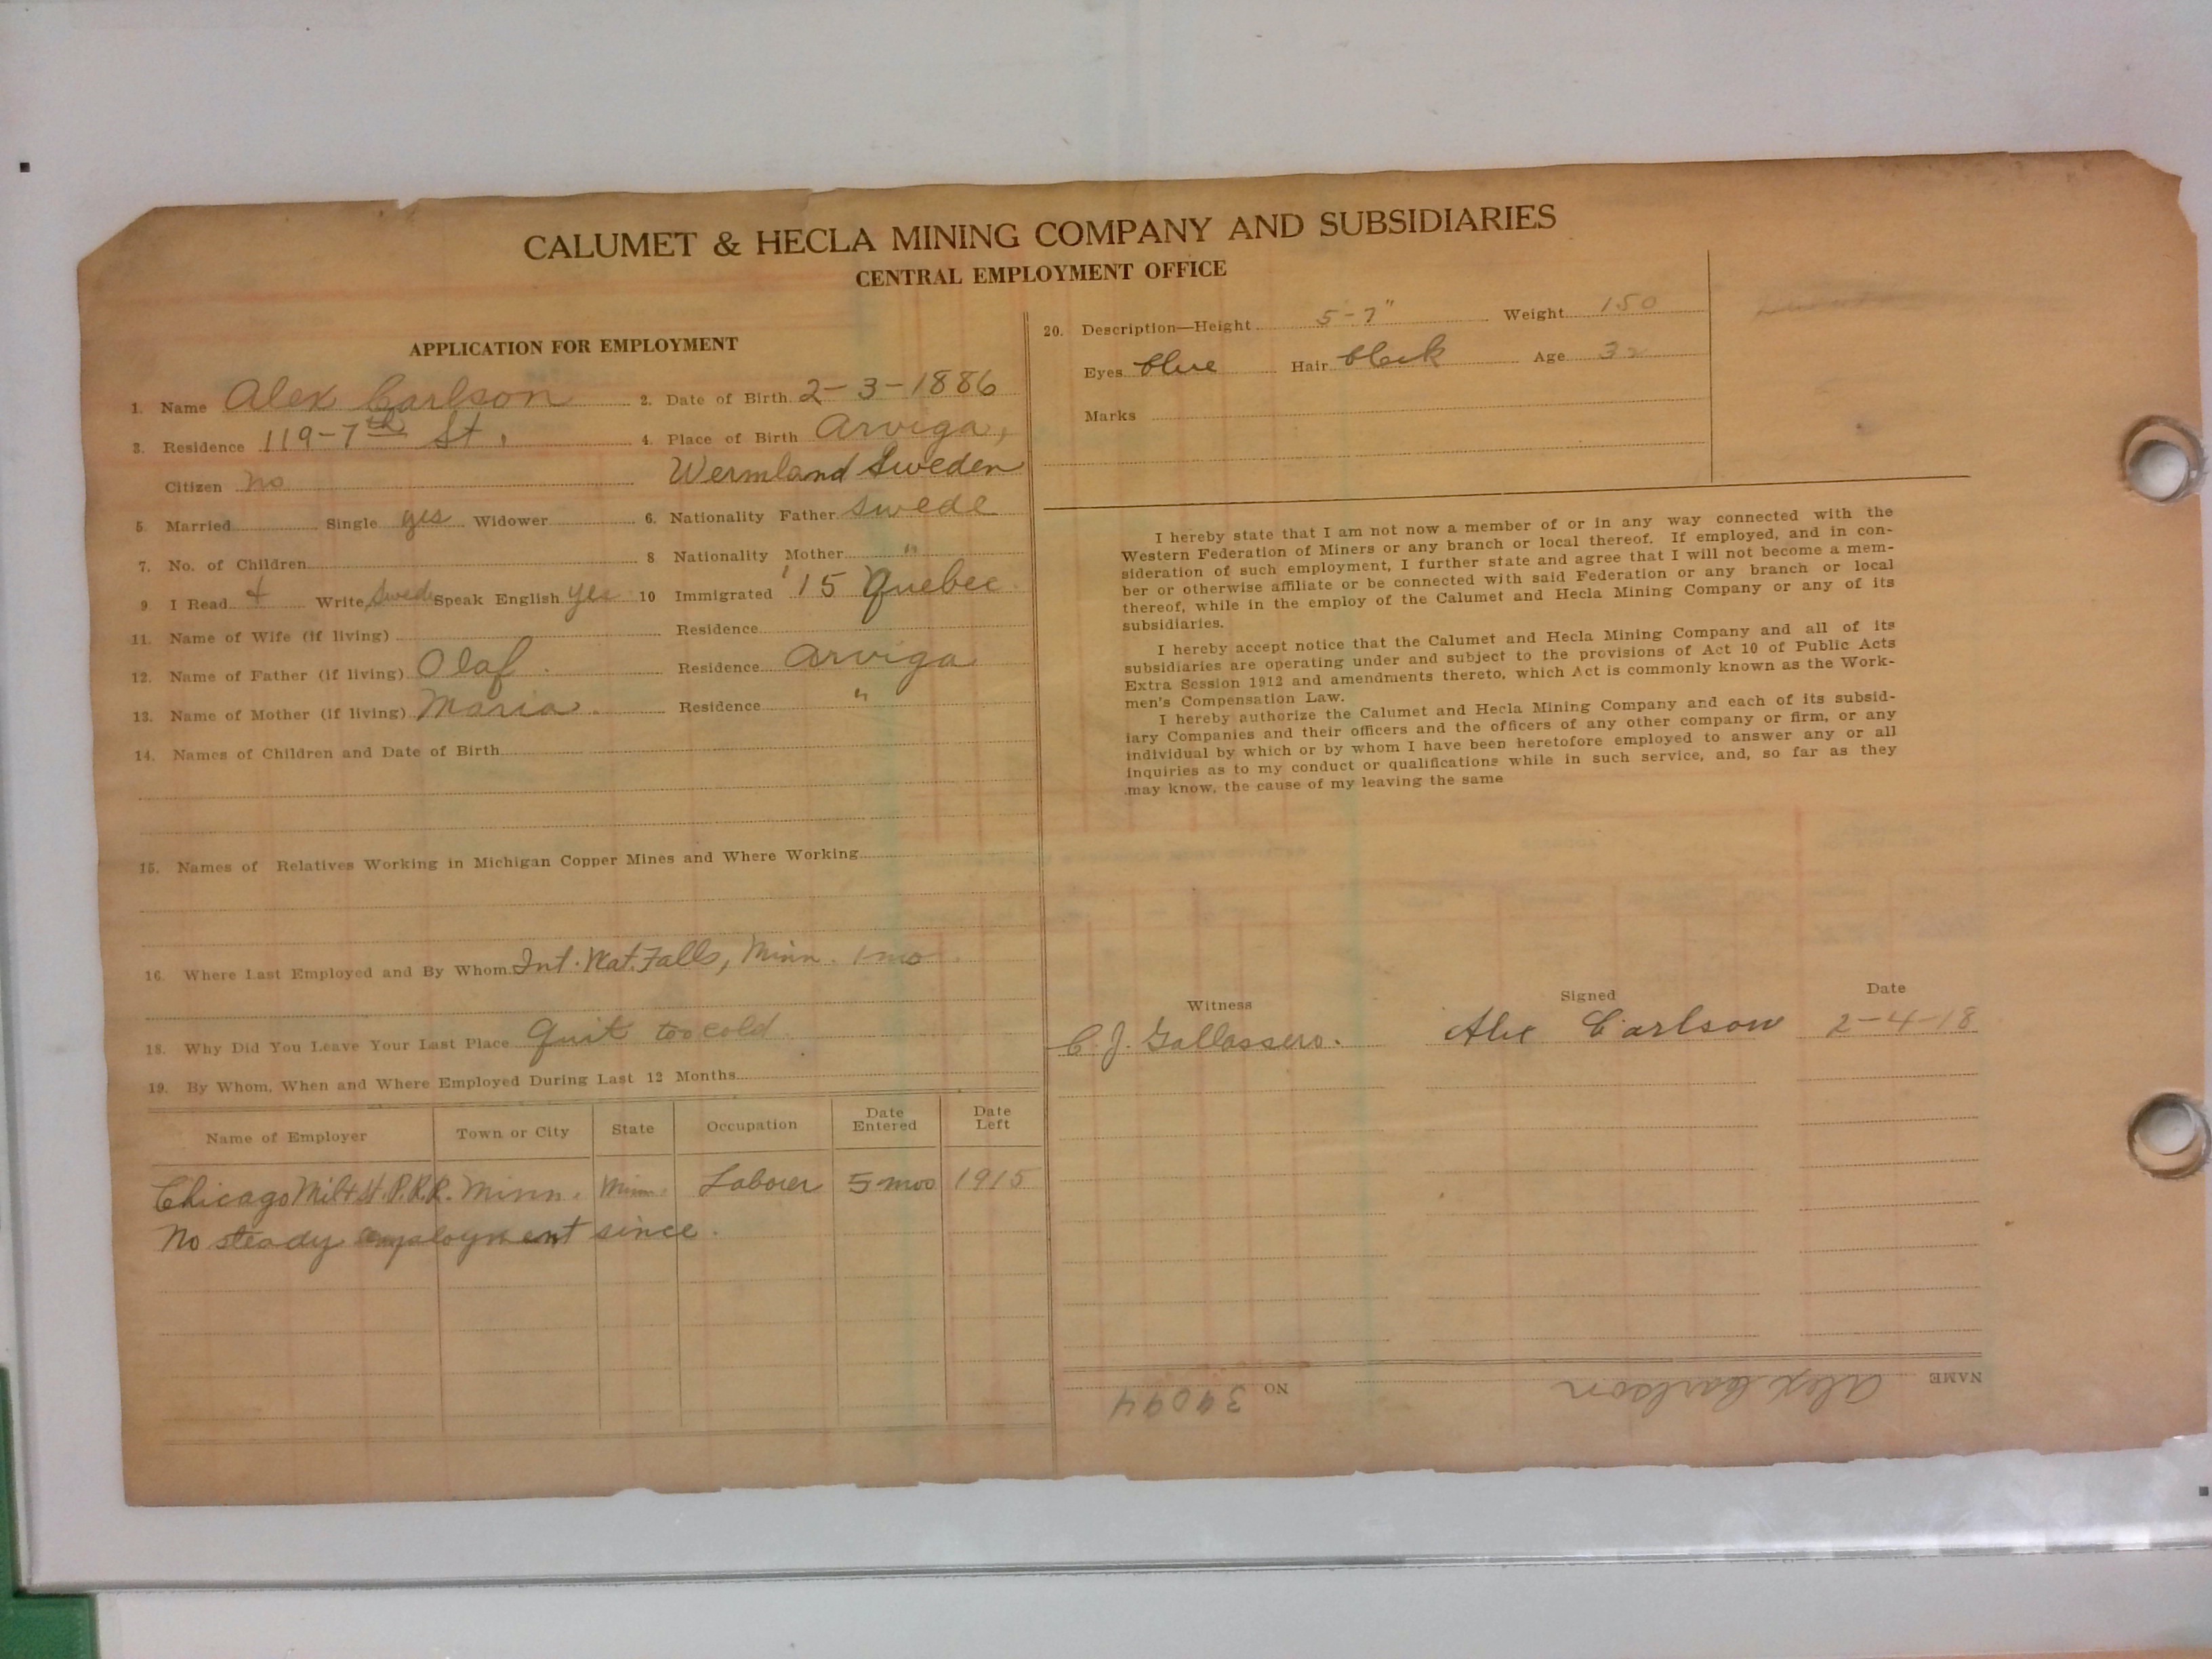 CALUMET & HECLA MINING COMPANY AND SUBSIDIARIES
CENTRAL EMPLOYMENT OFFICE
APPLICATION FOR EMPLOYMENT
1. Name Alex Carlson 2. Date of Birth 2-3-1886
3. Residence 119-7th St. 4. Place of Birth Arviga,
Citizen no Wermland Sweden
5 Married Single yes Widower 6. Nationality Father Swede
7. No. of Children 8 Nationality Mother "
9 I Read + Write Swede Speak English yes 10 Immigrated '15 Quebec
11. Name of Wife (if living) Residence
12. Name of Father (if living) Olaf. Residence Arviga
13. Name of Mother (if living) Maria. Residence "
14. Names of Children and Date of Birth
15. Names of Relatives Working in Michigan Copper Mines and Where Working
16. Where Last Employed and By Whom Int. Nat. Falls, Minn. 1 mo
18. Why Did You Leave Your Last Place Quit too cold
19. By Whom, When and Where Employed During Last 12 Months
Name of Employer Town or City State Occupation Date Entered Date Left
Chicago Mil & St. P.R.R. Minn. Minn. Laborer 5 mos 1915
No steady employment since.
20. Description—Height 5-7" Weight 150
Eyes blue Hair black Age 32
Marks
I hereby state that I am not now a member of or in any way connected with the
Western Federation of Miners or any branch or local thereof. If employed, and in con-
sideration of such employment, I further state and agree that I will not become a mem-
ber or otherwise affiliate or be connected with said Federation or any branch or local
thereof, while in the employ of the Calumet and Hecla Mining Company or any of its
subsidiaries.
I hereby accept notice that the Calumet and Hecla Mining Company and all of its
subsidiaries are operating under and subject to the provisions of Act 10 of Public Acts
Extra Session 1912 and amendments thereto, which Act is commonly known as the Work-
men's Compensation Law.
I hereby authorize the Calumet and Hecla Mining Company and each of its subsid-
iary Companies and their officers and the officers of any other company or firm, or any
individual by which or by whom I have been heretofore employed to answer any or all
inquiries as to my conduct or qualifications while in such service, and, so far as they
may know, the cause of my leaving the same
Witness Signed Date
C. J. Gallassero. Alex Carlson 2-4-18
NAME Alex Carlson NO 34094